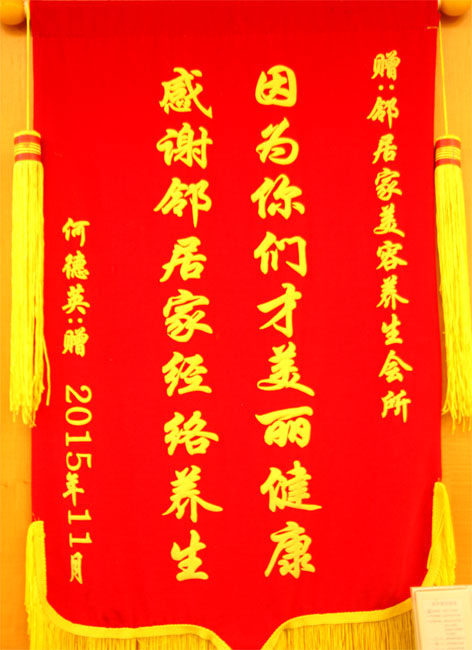 赠:邻居家美容养生会所
因为你们才美丽健康
感谢邻居家经络养生
何德英:赠 2015年11月